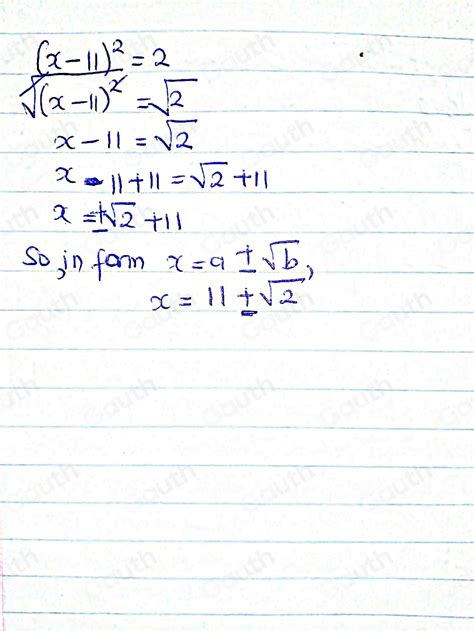 (x-11)² = 2
√(x-11)² = √2
x - 11 = √2
x - 11 + 11 = √2 + 11
x = ±√2 + 11
So, in form x = a ± √b,
x = 11 ± √2
Gauth